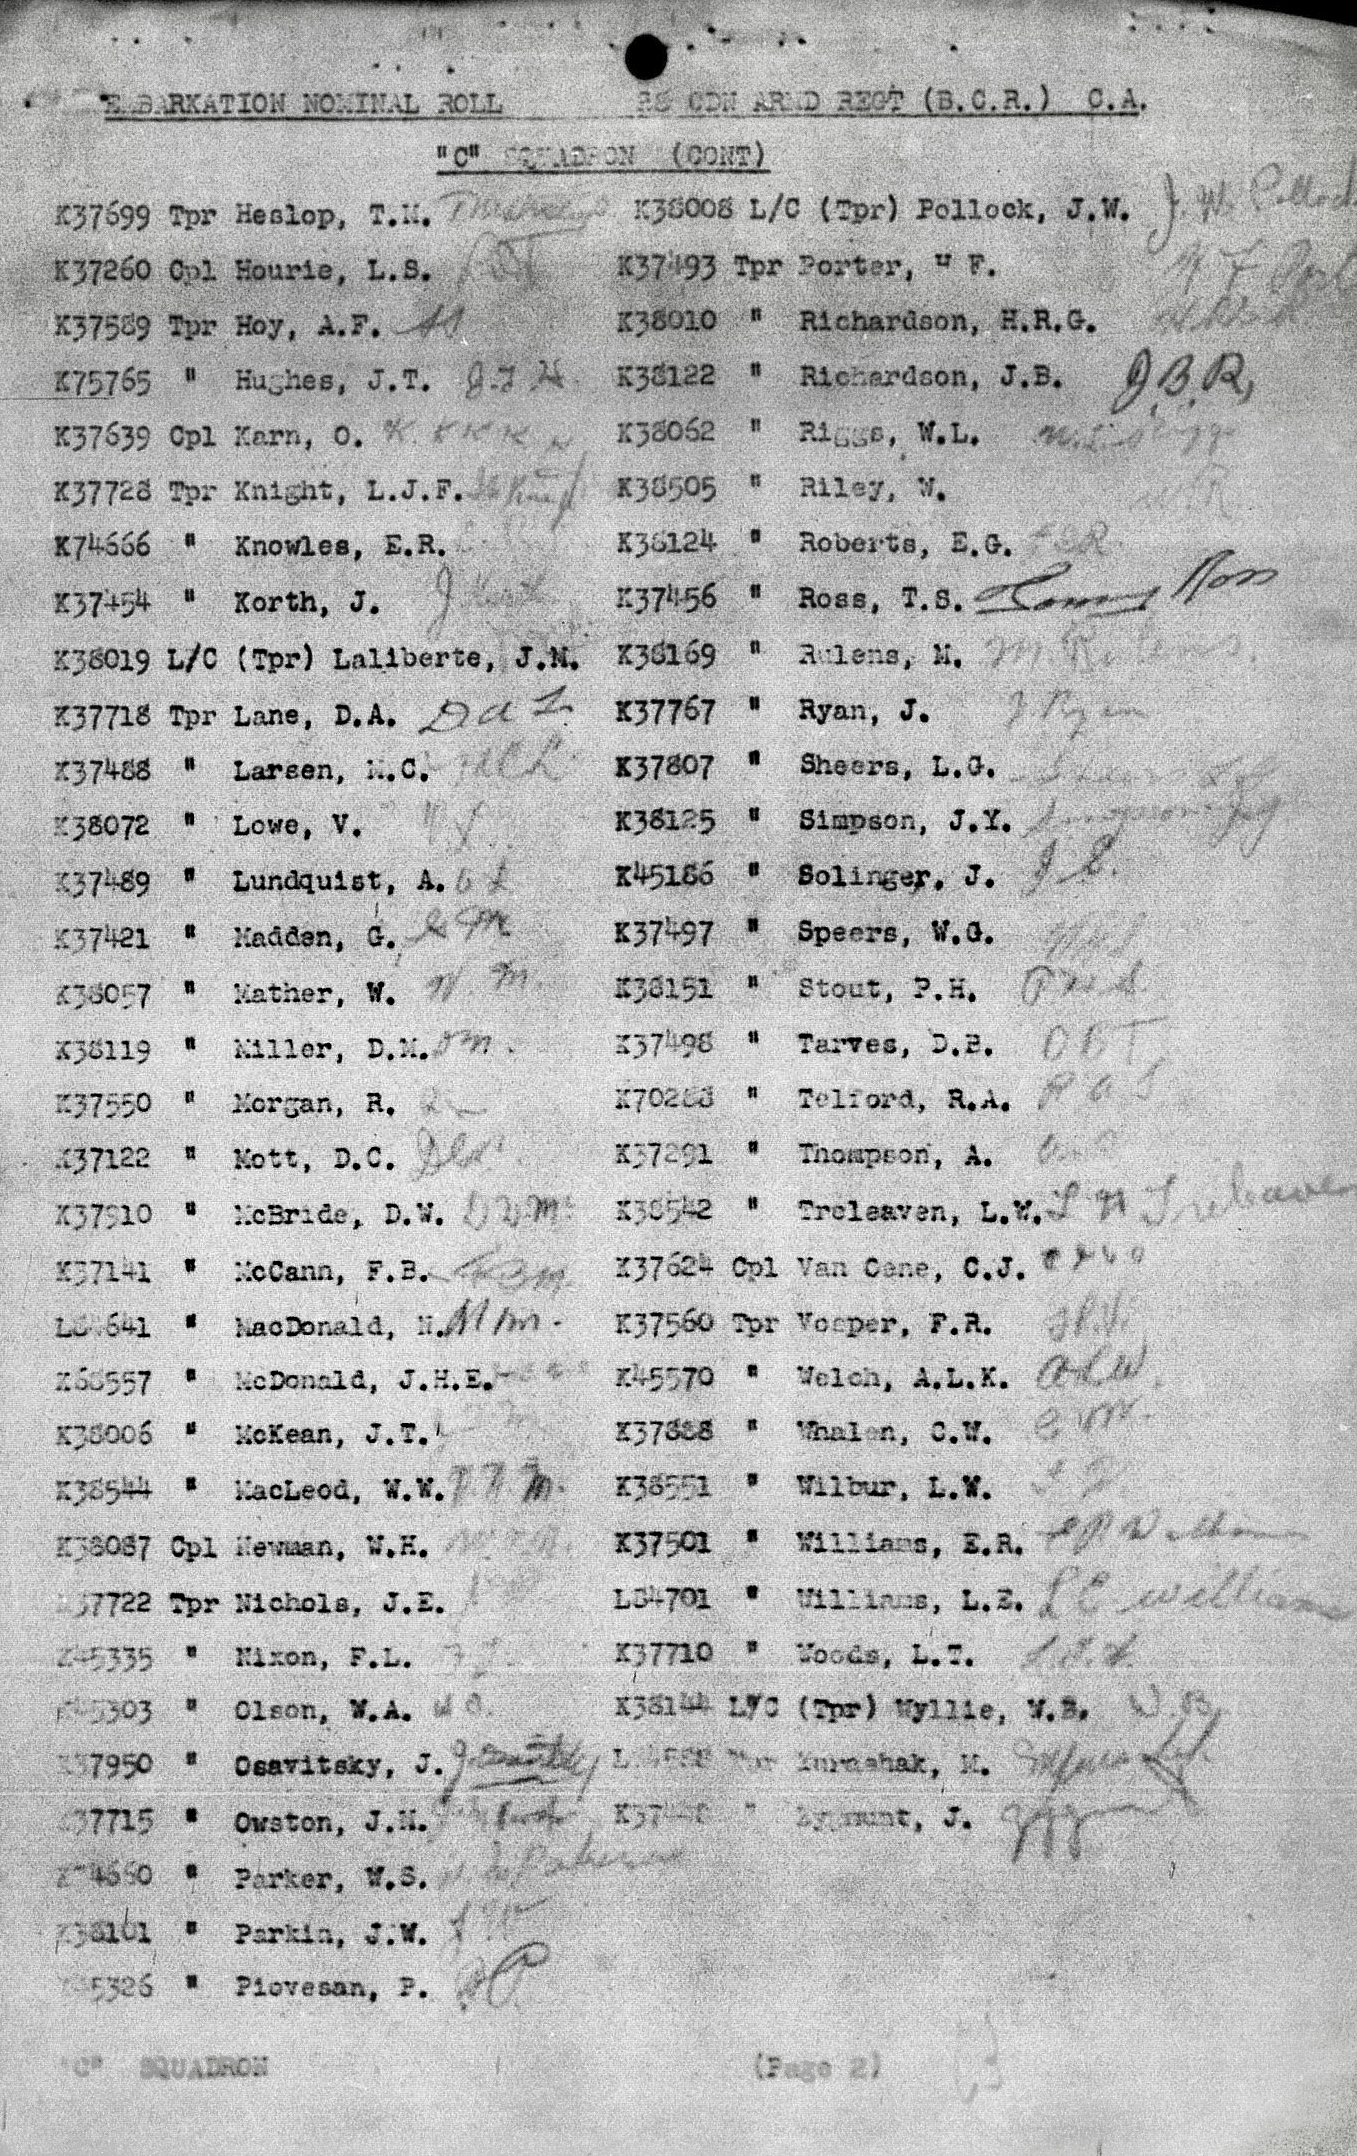 EMBARKATION NOMINAL ROLL 28 CDN ARMD REGT (B.C.R.) C.A.
"C" SQUADRON (CONT)
K37699 Tpr Heslop, T.M.
K37260 Cpl Hourie, L.S.
K37589 Tpr Hoy, A.F.
K75765 " Hughes, J.T. J.T.H.
K37639 Cpl Karn, O.
K37728 Tpr Knight, L.J.F.
K74666 " Knowles, E.R.
K37454 " Korth, J. J Korth
K38019 L/C (Tpr) Laliberte, J.M.
K37718 Tpr Lane, D.A. D a L
K37488 " Larsen, M.C.
K38072 " Lowe, V.
K37489 " Lundquist, A.
K37421 " Madden, G. G M
K38057 " Mather, W. W. M.
K38119 " Miller, D.M. DM.
K37550 " Morgan, R.
K37122 " Mott, D.C.
K37910 " McBride, D.W.
K37141 " McCann, F.B. FBM
" MacDonald, N. M M.
K68557 " McDonald, J.H.E.
K38006 " McKean, J.T.
K38544 " MacLeod, W.W.
K38087 Cpl Newman, W.H.
37722 Tpr Nichols, J.E.
K45335 " Nixon, F.L.
45303 " Olson, W.A.
K37950 " Osavitsky, J.
37715 " Owston, J.H.
" Parker, W.S.
K38101 " Parkin, J.W.
45326 " Piovesan, P. P
K38008 L/C (Tpr) Pollock, J.W. J. W. Pollock
K37493 Tpr Porter, F.
K38010 " Richardson, H.R.G.
K38122 " Richardson, J.B. J.B.R.
K38062 " Riggs, W.L. W.L. Riggs
K38505 " Riley, W. W R
K38124 " Roberts, E.G.
K37456 " Ross, T.S. Tommy Ross
K38169 " Rulens, M. M Rulens.
K37767 " Ryan, J. J. Ryan
K37807 " Sheers, L.G. Sheers L G
K38125 " Simpson, J.Y. Simpson JY
K45186 " Solinger, J. J S.
K37497 " Speers, W.G.
K38151 " Stout, P.H. P H S
K37498 " Tarves, D.B. D B T
" Telford, R.A. R A T
K37291 " Thompson, A.
K38542 " Treleaven, L.W. L W Treleaven
K37624 Cpl Van Oene, C.J.
K37560 Tpr Vosper, F.R.
K45570 " Welch, A.L.K. ALW.
K37888 " Whalen, C.W.
K38551 " Wilbur, L.W.
K37501 " Williams, E.R. E R Williams
L84701 " Williams, L.E. L E Williams
K37710 " Woods, L.T.
K38144 L/C (Tpr) Wyllie, W.B. W.B.
Tpr Yurashak, M.
" Zygmunt, J.
"C" SQUADRON (Page 2)